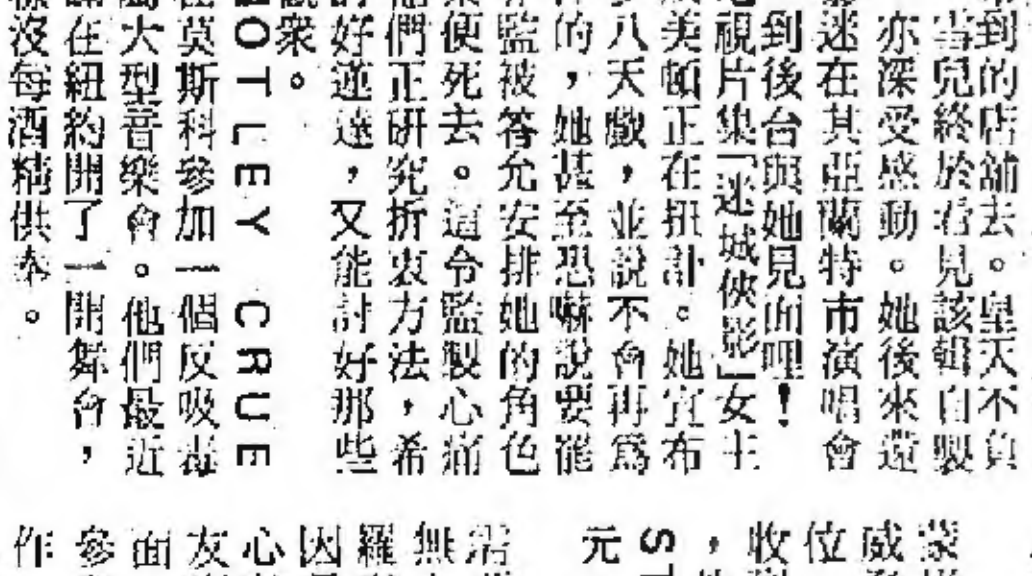 到的店舖去。皇天不負
當兒終於看見該輯自製
亦深受感動。她後來還
迷在其亞蘭特市演唱會
到後台與她見面哩!
視片集「迷城俠影」女主
美頓正在扭計。她宣布
八天戲,並說不會再爲
的,她甚至恐嚇說要罷
監被答允安排她的角色
便死去。這令監製心痛
們正研究折衷方法,希
好運達,又能討好那些
衆。
MOTLEY CRUE
莫斯科參加一個反吸毒
大型音樂會。他們最近
在紐約開了一開舞會,
沒每酒精供奉。
蒙
威
位
收
,
S
元
沿
無
羅
因
心
友
面
參
作